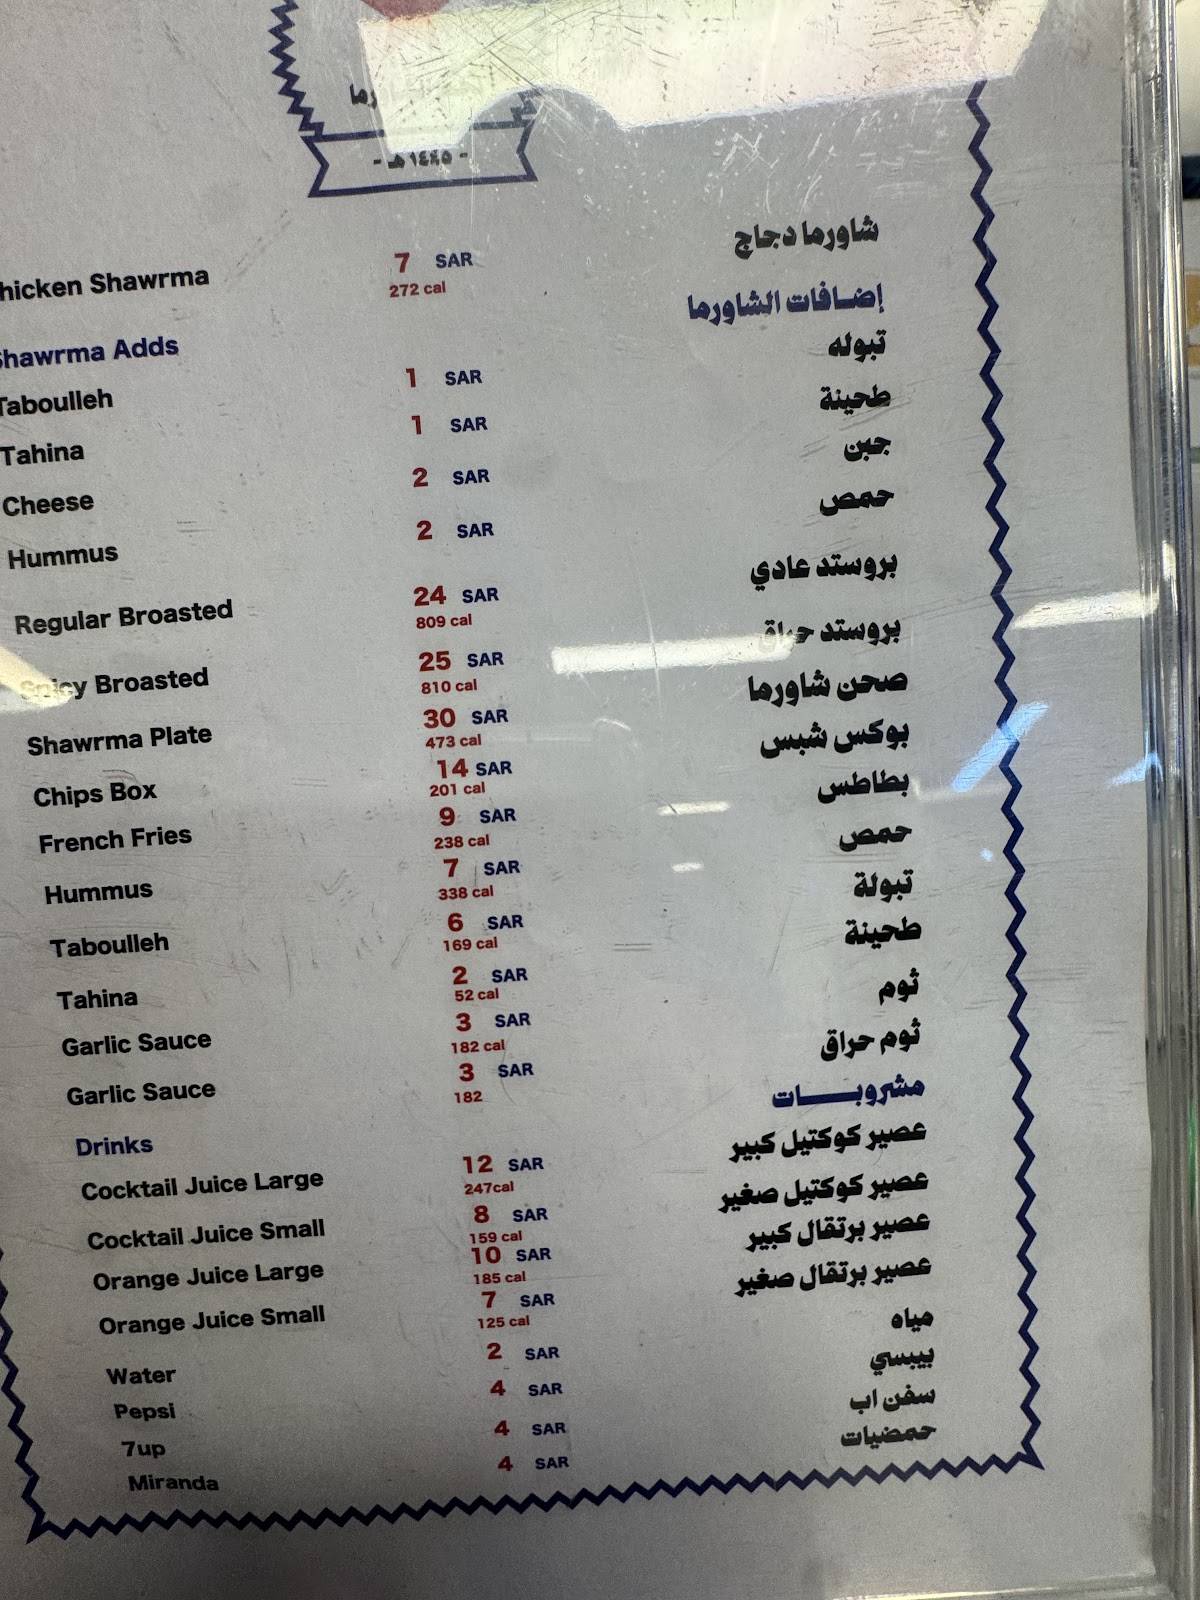 - ١٤٤٥ هـ -
hicken Shawrma 7 SAR شاورما دجاج
272 cal
hawrma Adds إضافات الشاورما
Taboulleh 1 SAR تبوله
Tahina 1 SAR طحينة
Cheese 2 SAR جبن
Hummus 2 SAR حمص
Regular Broasted 24 SAR بروستد عادي
809 cal
Spicy Broasted 25 SAR بروستد حراق
810 cal
Shawrma Plate 30 SAR صحن شاورما
473 cal
Chips Box 14 SAR بوكس شبس
201 cal
French Fries 9 SAR بطاطس
238 cal
Hummus 7 SAR حمص
338 cal
Taboulleh 6 SAR تبولة
169 cal
Tahina 2 SAR طحينة
52 cal
Garlic Sauce 3 SAR ثوم
182 cal
Garlic Sauce 3 SAR ثوم حراق
182
Drinks مشروبات
Cocktail Juice Large 12 SAR عصير كوكتيل كبير
247cal
Cocktail Juice Small 8 SAR عصير كوكتيل صغير
159 cal
Orange Juice Large 10 SAR عصير برتقال كبير
185 cal
Orange Juice Small 7 SAR عصير برتقال صغير
125 cal
Water 2 SAR مياه
Pepsi 4 SAR بيبسي
7up 4 SAR سفن اب
Miranda 4 SAR حمضيات